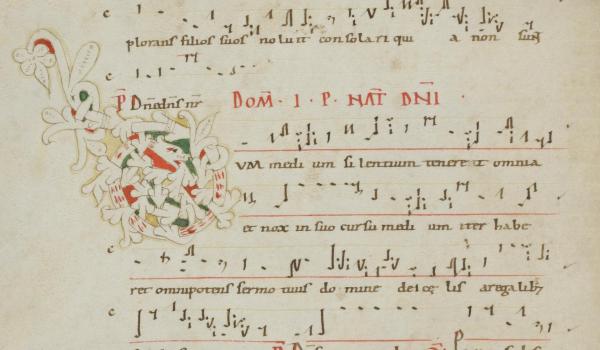 plorans filios suos noluit consolari qui a non sunt
P̄ Dn̄ednſ nr̄ DOM̄ · I · P · NAT̄ DN̄I ·
VM medi um si lentium tenere t omnia
et nox in suo cursu medi um iter habe
ret omnipotens sermo tuus do mine de i cę lis aregalib;